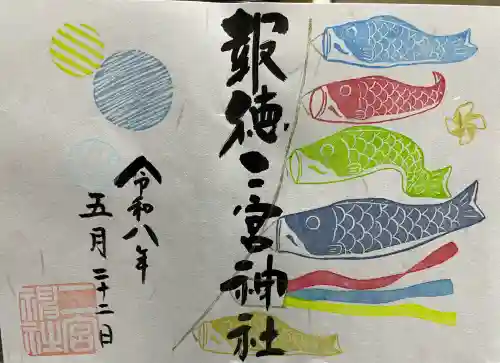 報徳二宮神社
令和八年
五月二十二日
二宮
神社